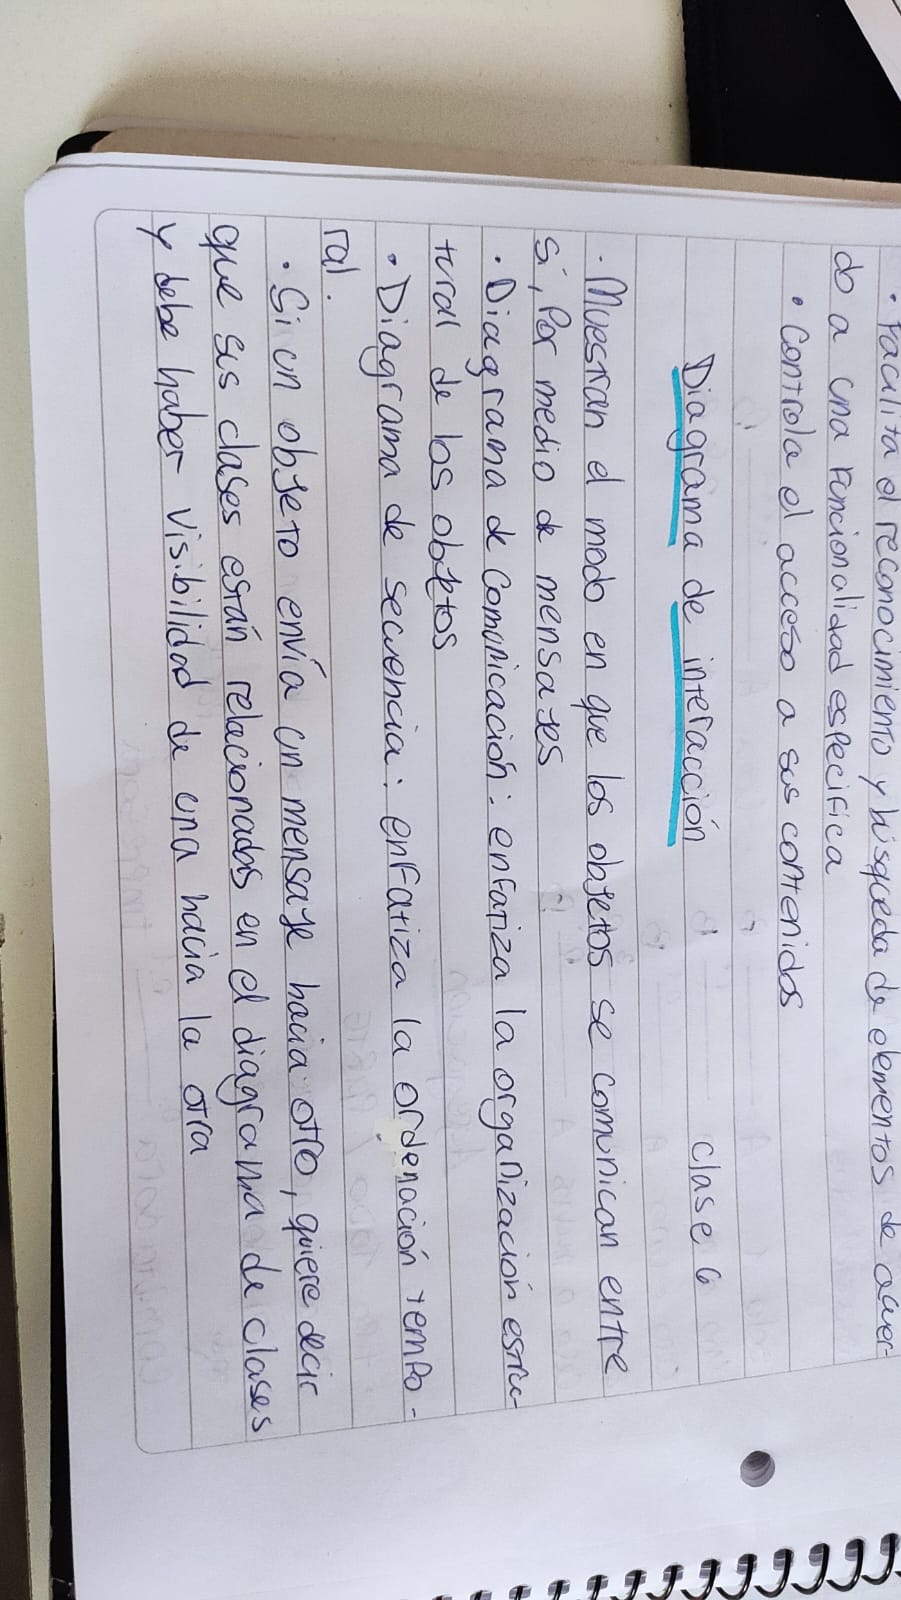 · Facilita el reconocimiento y búsqueda de elementos de acuer-
do a una funcionalidad especifica
· Controla el acceso a sus contenidos
Diagrama de interacción Clase 6
· Muestran el modo en que los objetos se comunican entre
sí, por medio de mensajes
· Diagrama de comunicación: enfatiza la organización estruc-
tural de los objetos
· Diagrama de secuencia: enfatiza la ordenación tempo-
ral.
· Si un objeto envía un mensaje hacia otro, quiere decir
que sus clases están relacionadas en el diagrama de clases
y debe haber visibilidad de una hacia la otra